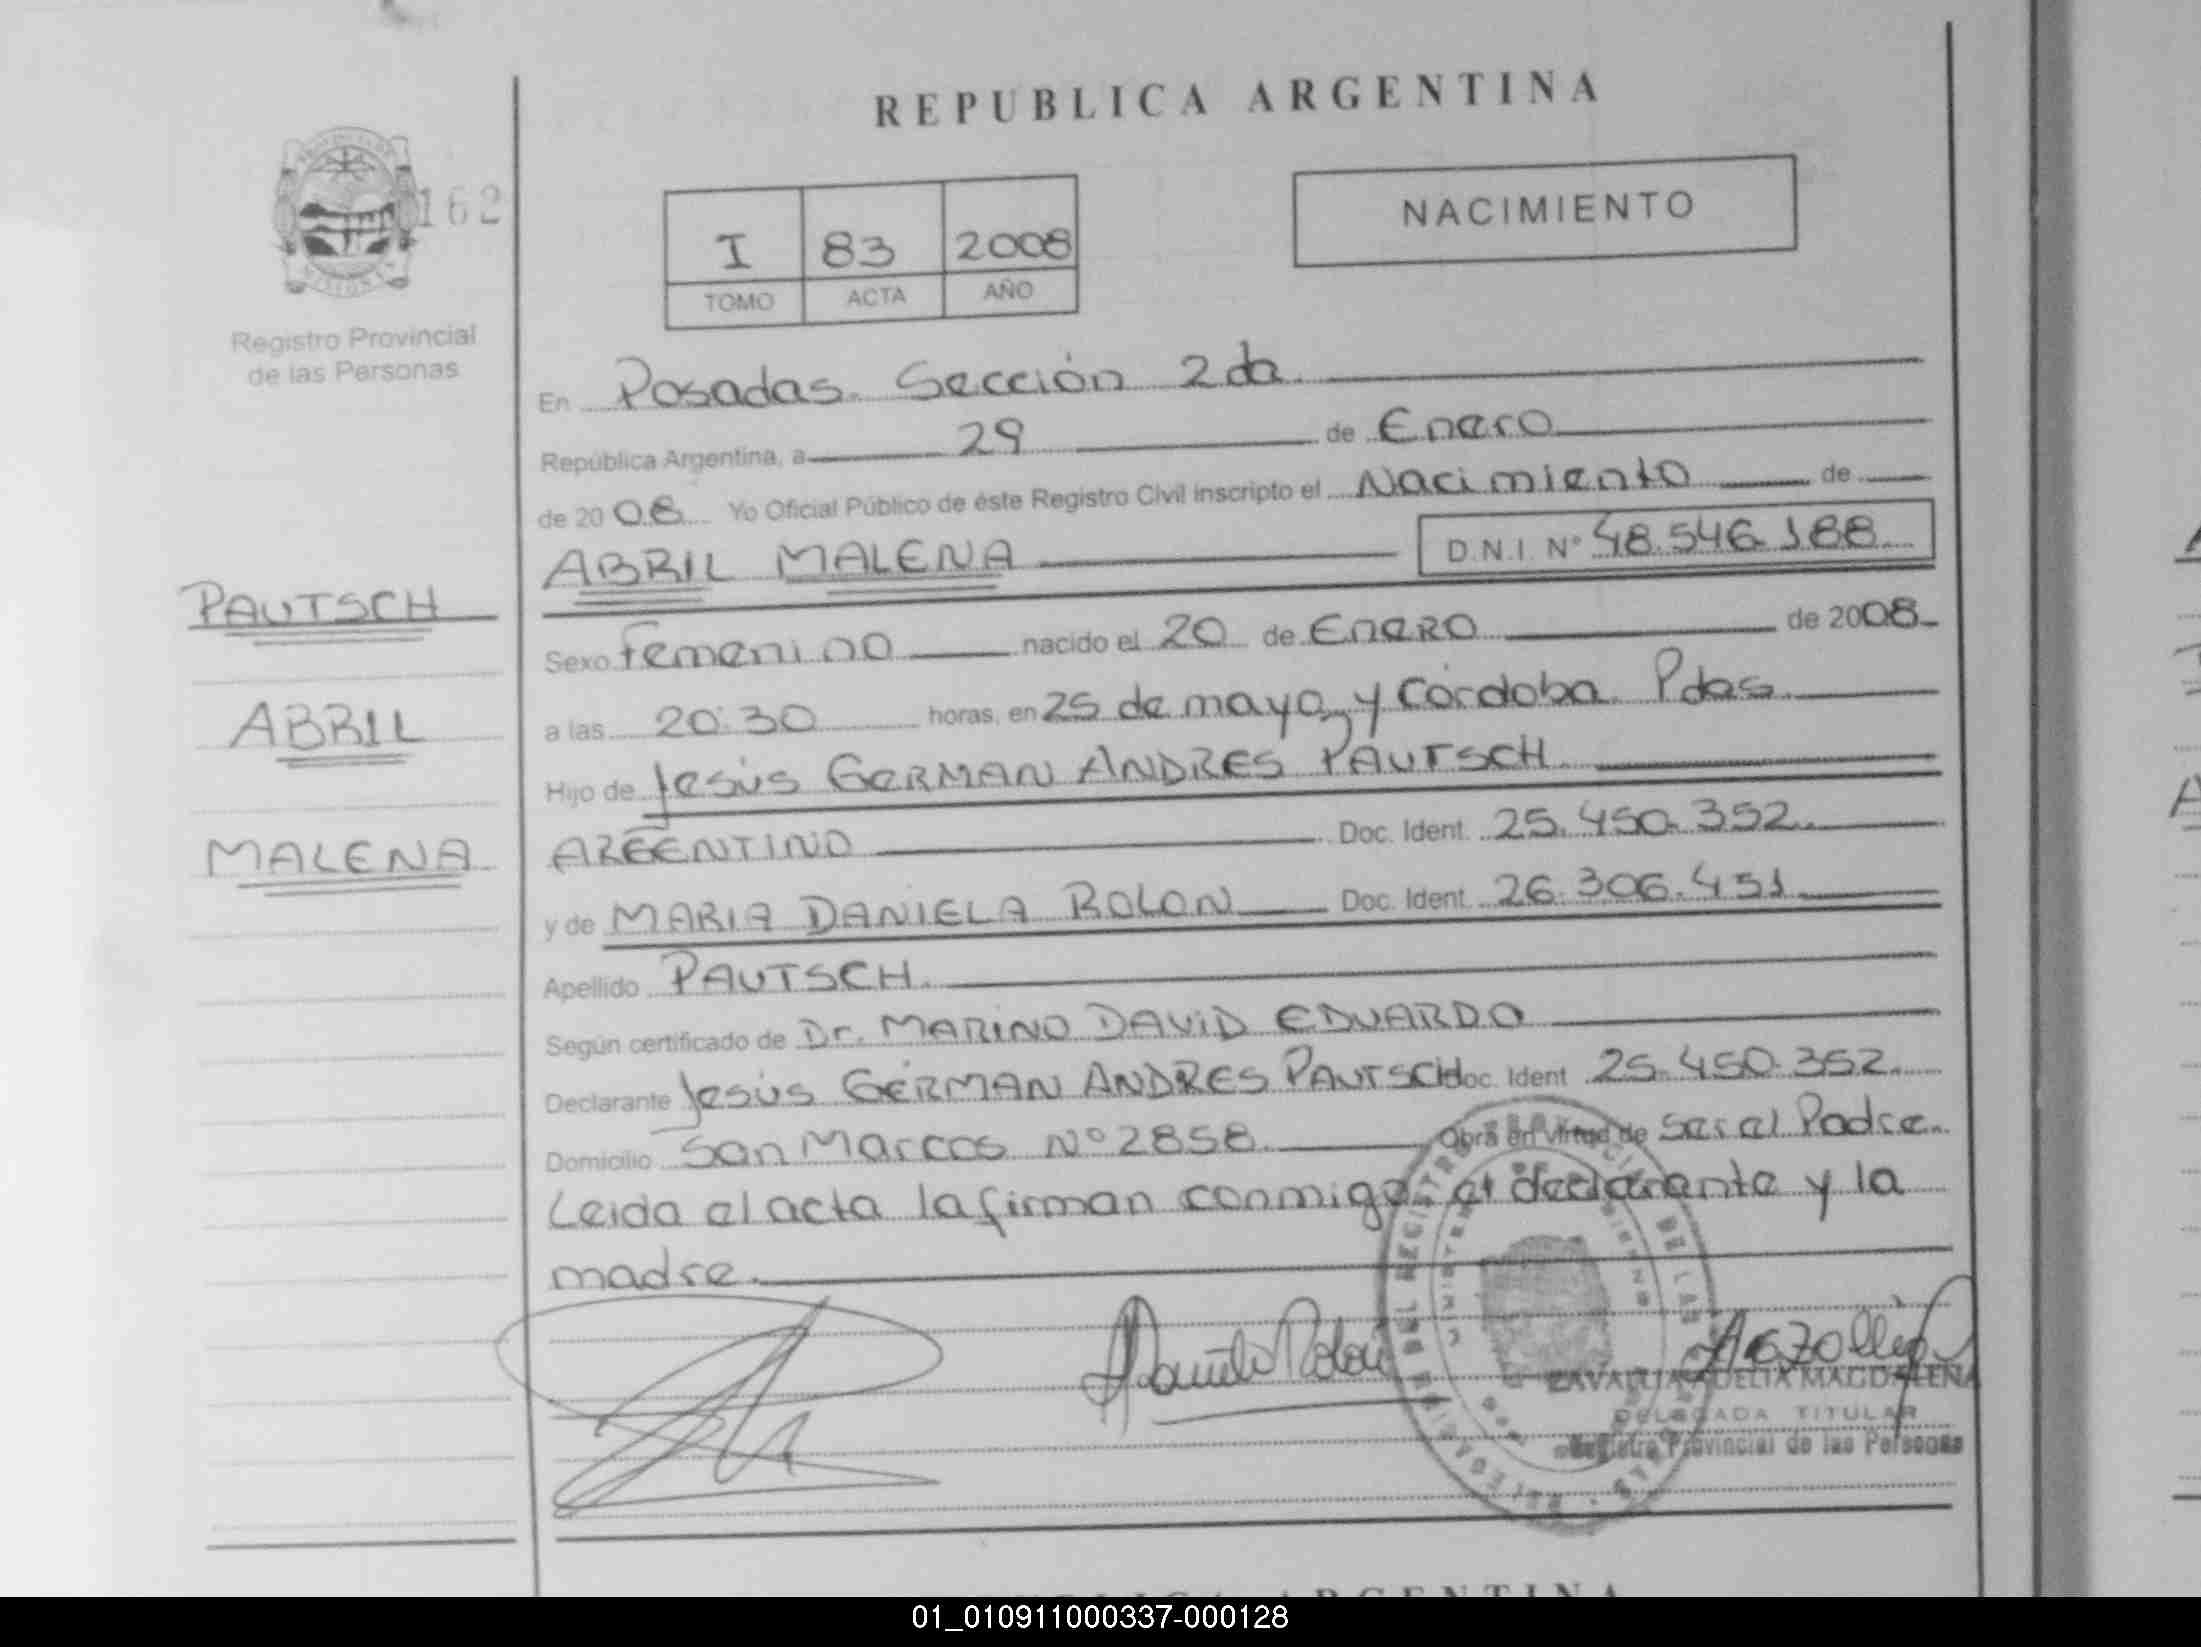 REPUBLICA ARGENTINA
162
NACIMIENTO
I 83 2008
TOMO ACTA AÑO
Registro Provincial
de las Personas
En Posadas. Sección 2da.
República Argentina, a 29 de Enero
de 2008 Yo Oficial Público de éste Registro Civil inscripto el Nacimiento de
ABRIL MALENA D.N.I. Nº 48.546.188
PAUTSCH
ABRIL
MALENA
Sexo femenino nacido el 20 de ENERO de 2008
a las 20:30 horas, en 25 de mayo y Córdoba. Pdas.
Hijo de Jesús GERMAN ANDRES PAUTSCH.
ARGENTINO Doc. Ident. 25.450.352.
y de MARIA DANIELA ROLON Doc. Ident. 26.306.451
Apellido PAUTSCH.
Según certificado de Dr. MARINO DAVID EDUARDO
Declarante Jesús GERMAN ANDRES PAUTSCH Doc. Ident 25.450.352.
Domicilio San Marcos Nº 2858. Obra en virtud de Ser el Padre.
Leida el acta la firman conmigo, el declarante y la
madre.
Daniela Rolon
ZAVALLIA ADELIA MAGDALENA
DELEGADA TITULAR
Registro Provincial de las Personas
01_010911000337-000128